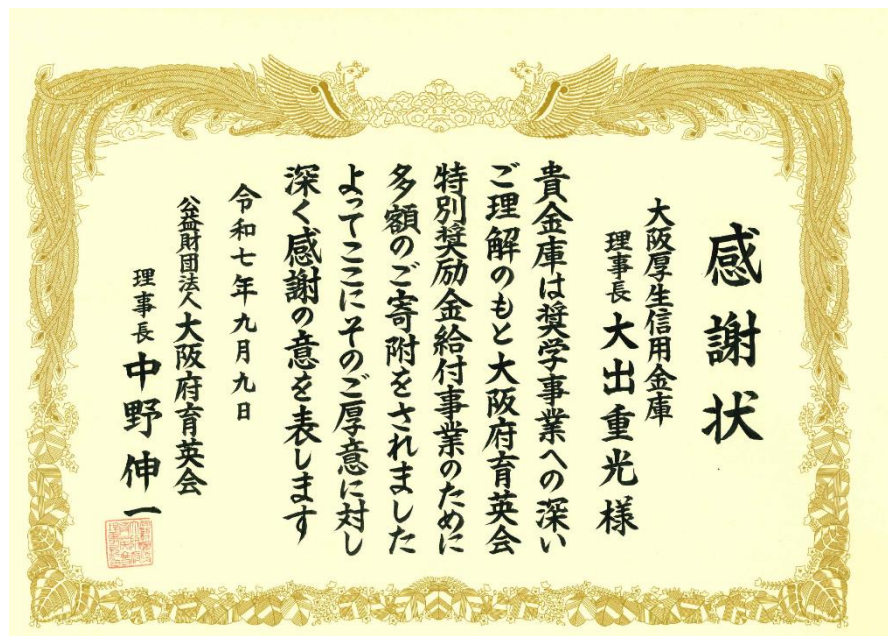 感謝状
大阪厚生信用金庫
理事長 大出重光様
貴金庫は奨学事業への深い
ご理解のもと大阪府育英会
特別奨励金給付事業のために
多額のご寄附をされました
よってここにそのご厚意に対し
深く感謝の意を表します
令和七年九月九日
公益財団法人大阪府育英会
理事長 中野伸一